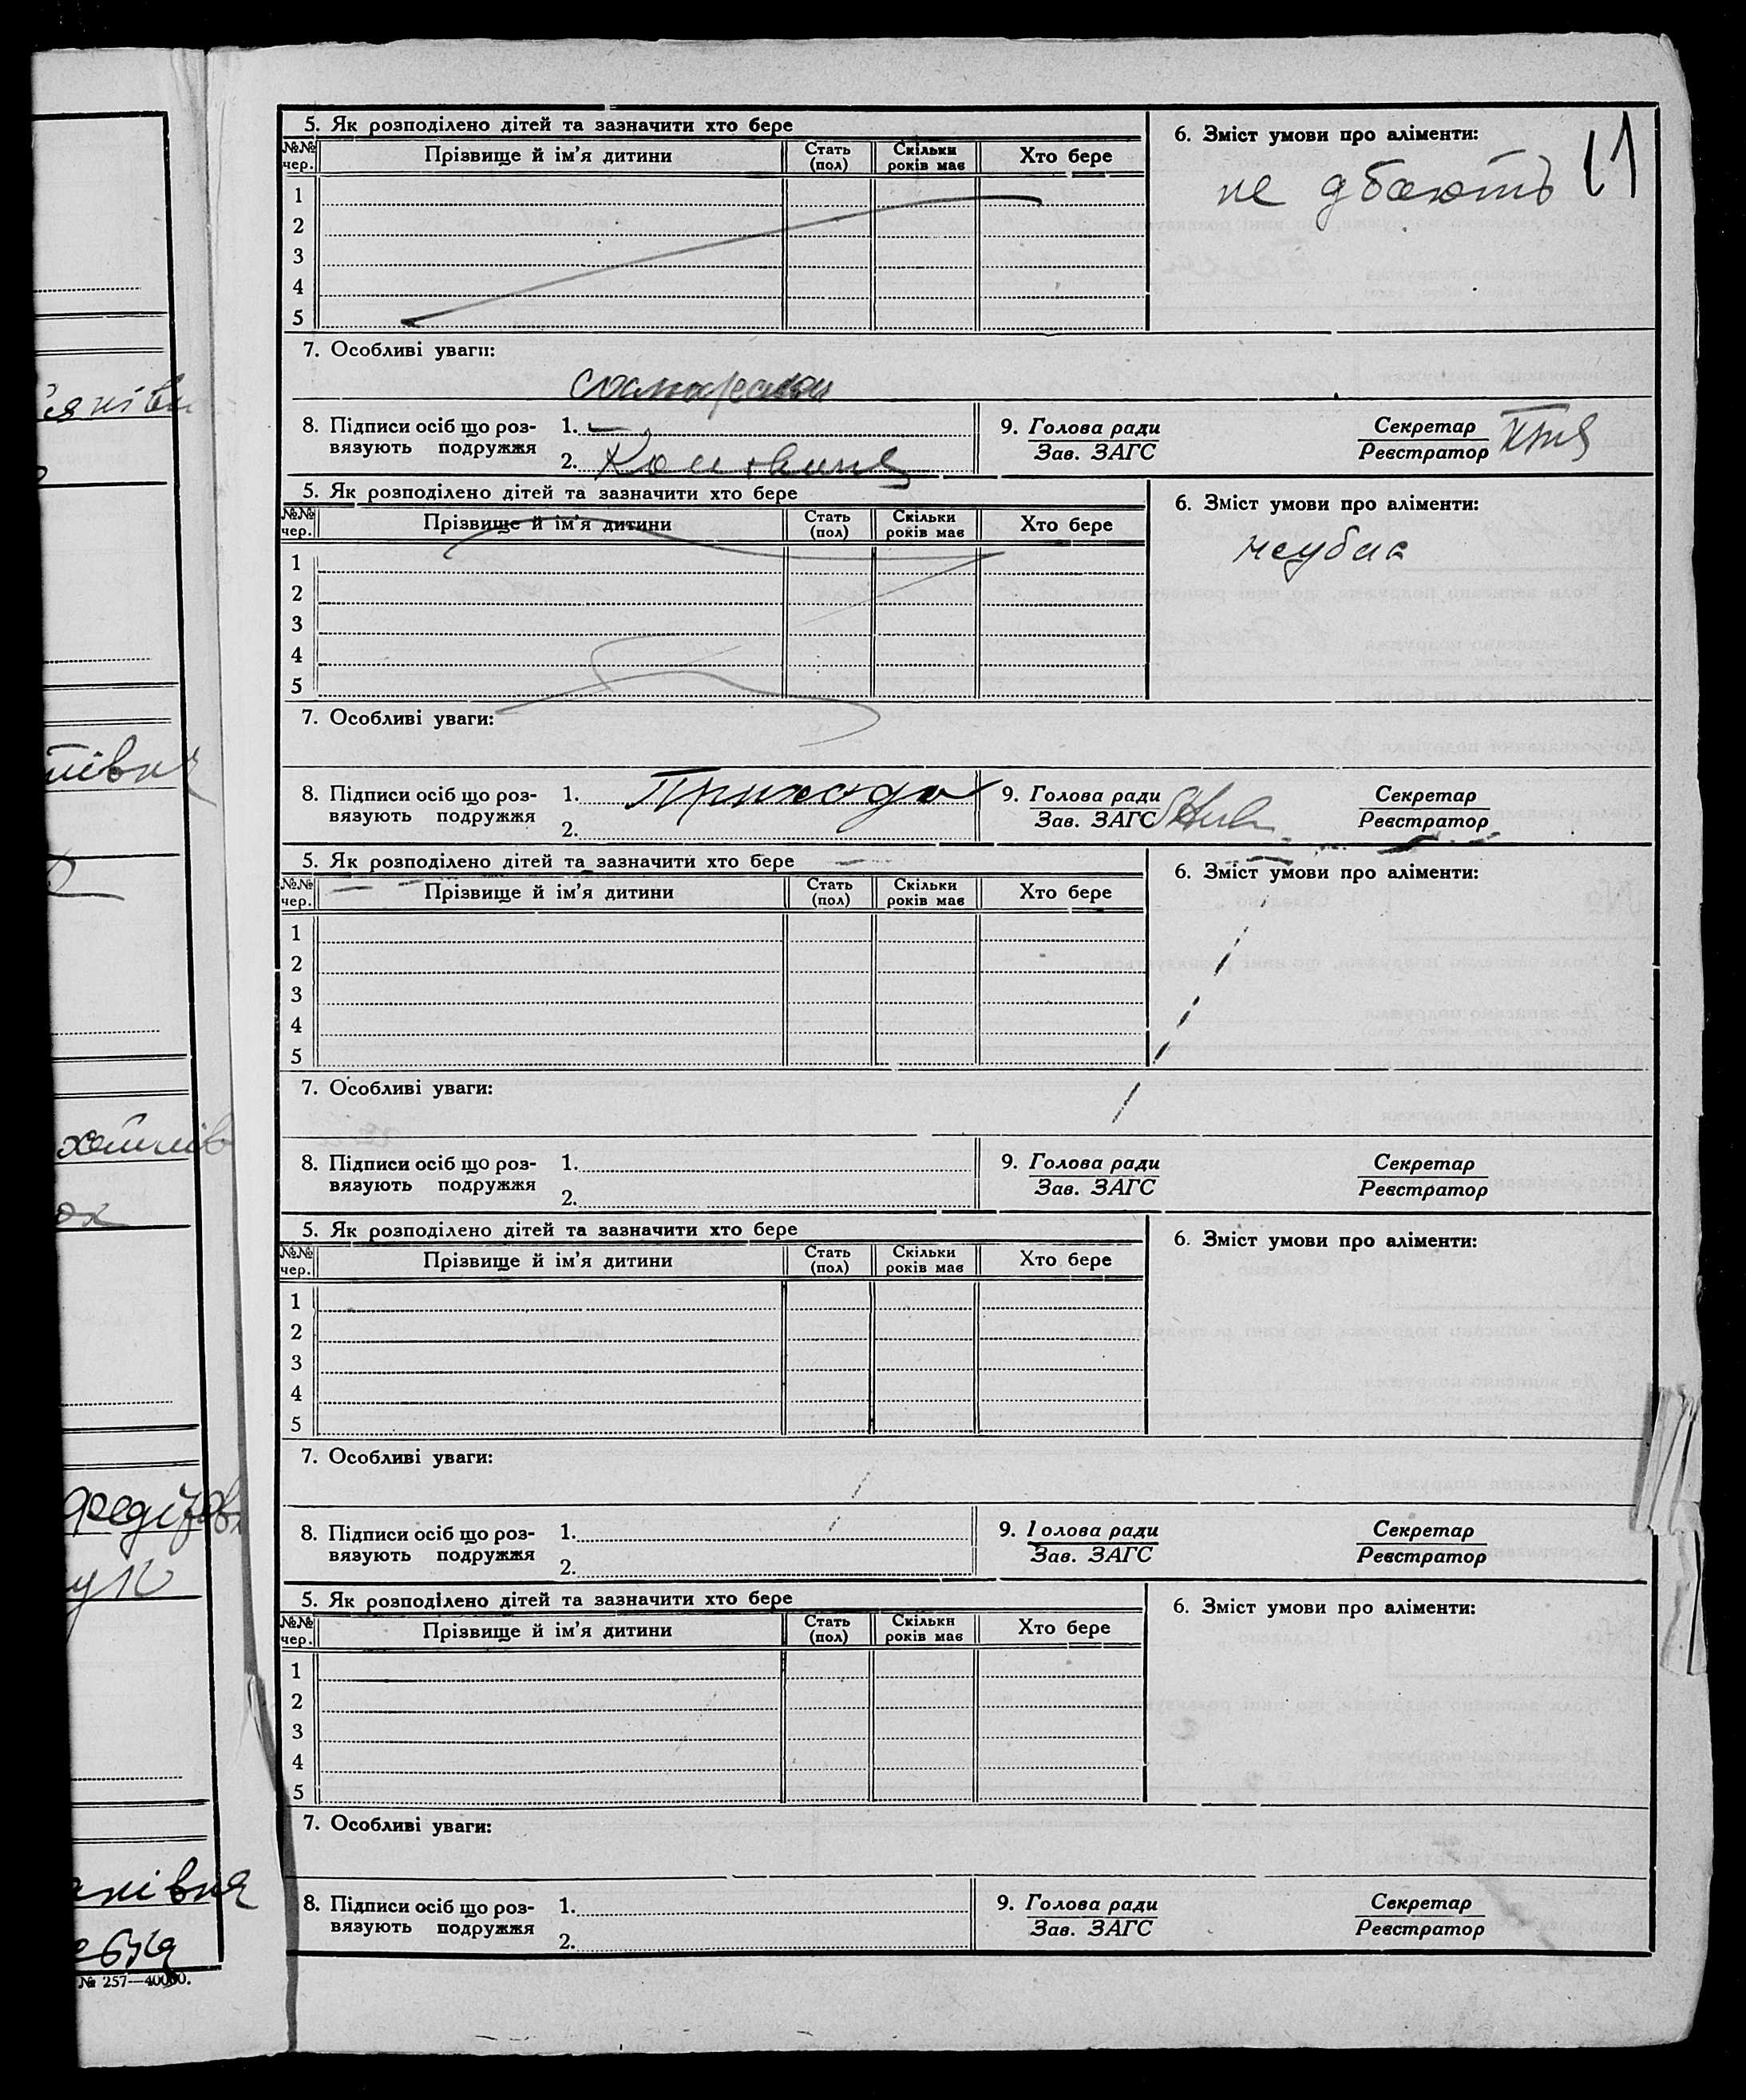 5. Як розподілено дітей та зазначити хто бере
6. Зміст умови про аліменти:
11
№№ чер. Прізвище й ім'я дитини Стать (пол) Скільки років має Хто бере
не дбають
1
2
3
4
5
7. Особливі уваги:
8. Підписи осіб що роз-вязують подружжя
1.
2.
9. Голова ради
Зав. ЗАГС
Секретар
Реєстратор
5. Як розподілено дітей та зазначити хто бере
6. Зміст умови про аліменти:
№№ чер. Прізвище й ім'я дитини Стать (пол) Скільки років має Хто бере
1
2
3
4
5
7. Особливі уваги:
8. Підписи осіб що роз-вязують подружжя
1. Приходо
2.
9. Голова ради
Зав. ЗАГС
Секретар
Реєстратор
5. Як розподілено дітей та зазначити хто бере
6. Зміст умови про аліменти:
№№ чер. Прізвище й ім'я дитини Стать (пол) Скільки років має Хто бере
1
2
3
4
5
7. Особливі уваги:
8. Підписи осіб що роз-вязують подружжя
1.
2.
9. Голова ради
Зав. ЗАГС
Секретар
Реєстратор
5. Як розподілено дітей та зазначити хто бере
6. Зміст умови про аліменти:
№№ чер. Прізвище й ім'я дитини Стать (пол) Скільки років має Хто бере
1
2
3
4
5
7. Особливі уваги:
8. Підписи осіб що роз-вязують подружжя
1.
2.
9. Голова ради
Зав. ЗАГС
Секретар
Реєстратор
5. Як розподілено дітей та зазначити хто бере
6. Зміст умови про аліменти:
№№ чер. Прізвище й ім'я дитини Стать (пол) Скільки років має Хто бере
1
2
3
4
5
7. Особливі уваги:
8. Підписи осіб що роз-вязують подружжя
1.
2.
9. Голова ради
Зав. ЗАГС
Секретар
Реєстратор
№ 257—40000.